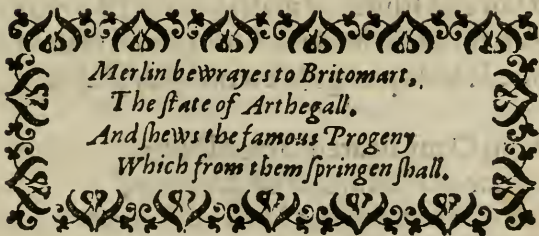 Merlin bewrayes to Britomart,
The ſtate of Arthegall.
And ſhews the famous Progeny
Which from them ſpringen ſhall.